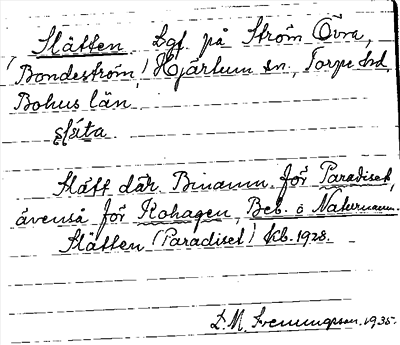 Slätten. Lgf. på Ström Övra,
(Bondeström) Hjärtum sn, Torpe hd
Bohus län.
slä́ta.
Slätt där. Binamn för Paradiset,
ävenså för Kohagen, Beb. o Naturnamn.
Slätten (Paradiset) Kb. 1928.
D.M. Svenungsson. 1935.